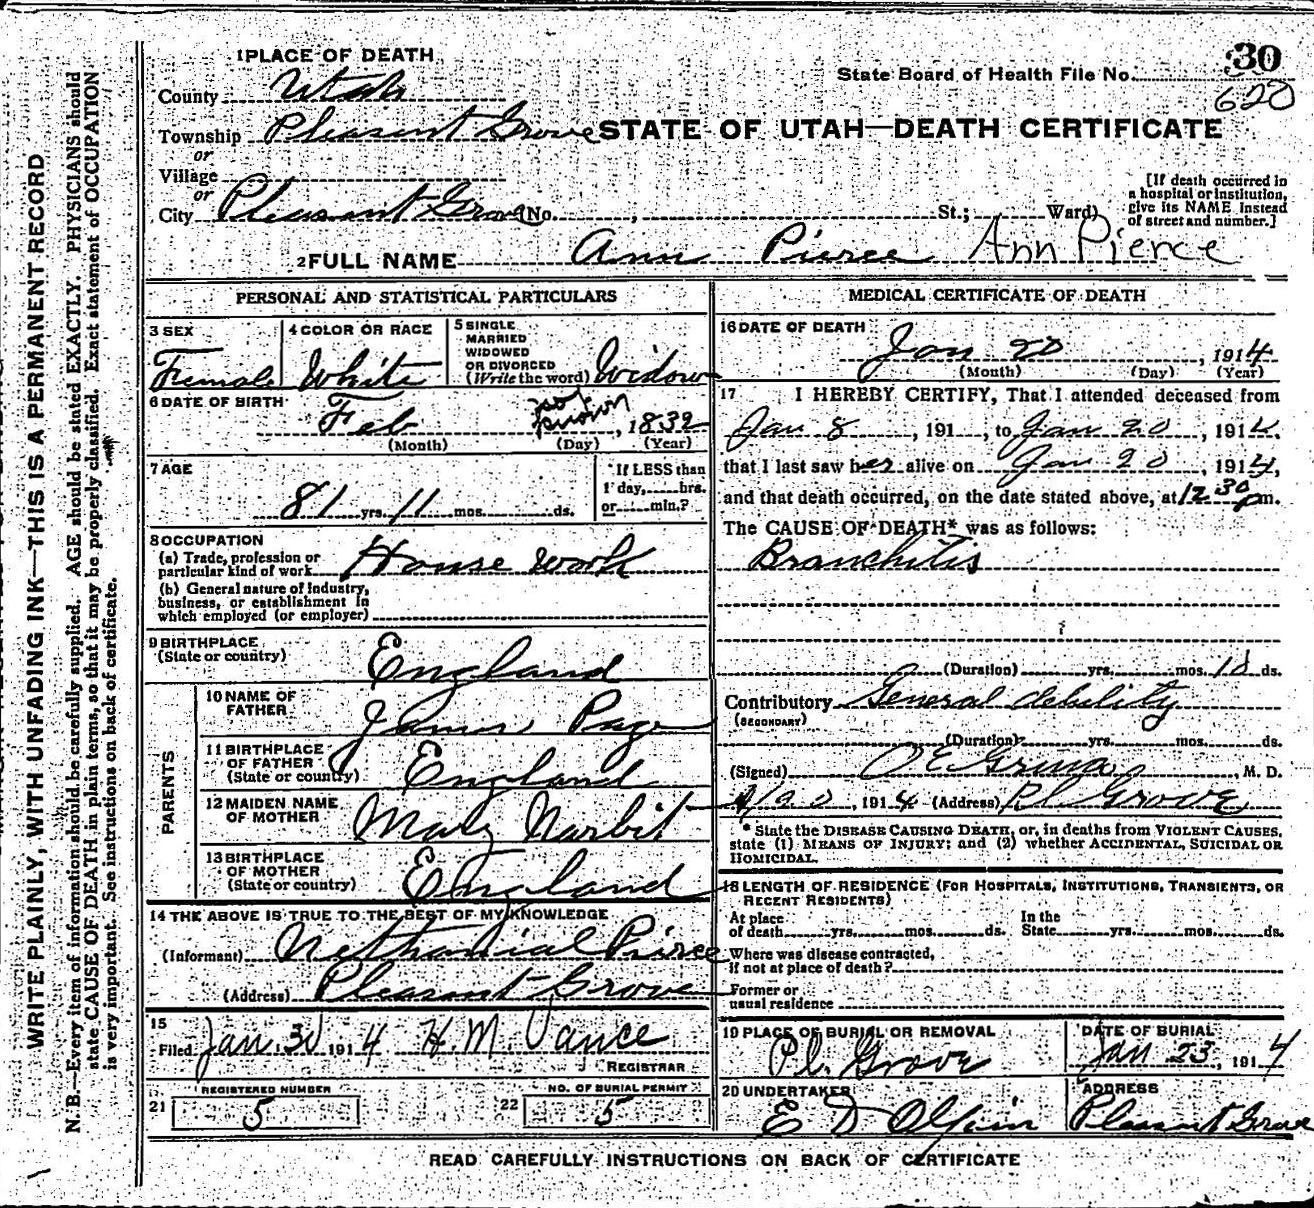 WRITE PLAINLY, WITH UNFADING INK—THIS IS A PERMANENT RECORD
N. B.—Every item of information should be carefully supplied. AGE should be stated EXACTLY. PHYSICIANS should
state CAUSE OF DEATH in plain terms, so that it may be properly classified. Exact statement of OCCUPATION
is very important. See instructions on back of certificate.
1 PLACE OF DEATH
State Board of Health File No. 30
620
County Utah
Township Pleasant Grove
STATE OF UTAH—DEATH CERTIFICATE
or
Village
or
City Pleasant Grove No. , St.; Ward)
[If death occurred in
a hospital or institution,
give its NAME instead
of street and number.]
2 FULL NAME Ann Pierce Ann Pierce
PERSONAL AND STATISTICAL PARTICULARS
3 SEX
Female
4 COLOR OR RACE
White
5 SINGLE
MARRIED
WIDOWED
OR DIVORCED
(Write the word) Widow
6 DATE OF BIRTH
Feb not known , 1832
(Month) (Day) (Year)
7 AGE
81 yrs. 11 mos. ds.
If LESS than
1 day, hrs.
or min.?
8 OCCUPATION
(a) Trade, profession or
particular kind of work House work
(b) General nature of Industry,
business, or establishment in
which employed (or employer)
9 BIRTHPLACE
(State or country) England
PARENTS
10 NAME OF
FATHER James Page
11 BIRTHPLACE
OF FATHER
(State or country) England
12 MAIDEN NAME
OF MOTHER Mary Narbit
13 BIRTHPLACE
OF MOTHER
(State or country) England
14 THE ABOVE IS TRUE TO THE BEST OF MY KNOWLEDGE
(Informant) Nethanial Pierce
(Address) Pleasant Grove
15
Filed Jan. 30 1914 H. M. Vance
REGISTRAR
REGISTERED NUMBER
21 5
NO. OF BURIAL PERMIT
22 5
MEDICAL CERTIFICATE OF DEATH
16 DATE OF DEATH
Jan 20 , 1914
(Month) (Day) (Year)
17 I HEREBY CERTIFY, That I attended deceased from
Jan 8 , 191 , to Jan 20 , 1914,
that I last saw her alive on Jan 20 , 1914,
and that death occurred, on the date stated above, at 12 30 pm.
The CAUSE OF DEATH* was as follows:
Branchitis
(Duration) yrs. mos. 10 ds.
Contributory General debility
(SECONDARY)
(Duration) yrs. mos. ds.
(Signed) , M. D.
1/20 , 1914 (Address) Pl Grove
* State the DISEASE CAUSING DEATH, or, in deaths from VIOLENT CAUSES,
state (1) MEANS OF INJURY; and (2) whether ACCIDENTAL, SUICIDAL OR
HOMICIDAL.
18 LENGTH OF RESIDENCE (FOR HOSPITALS, INSTITUTIONS, TRANSIENTS, OR
RECENT RESIDENTS)
At place
of death yrs. mos. ds.
In the
State yrs. mos. ds.
Where was disease contracted,
if not at place of death?
Former or
usual residence
19 PLACE OF BURIAL OR REMOVAL
Pl. Grove
DATE OF BURIAL
Jan 23 , 1914
20 UNDERTAKER
E D Olpin
ADDRESS
Pleasant Grove
READ CAREFULLY INSTRUCTIONS ON BACK OF CERTIFICATE